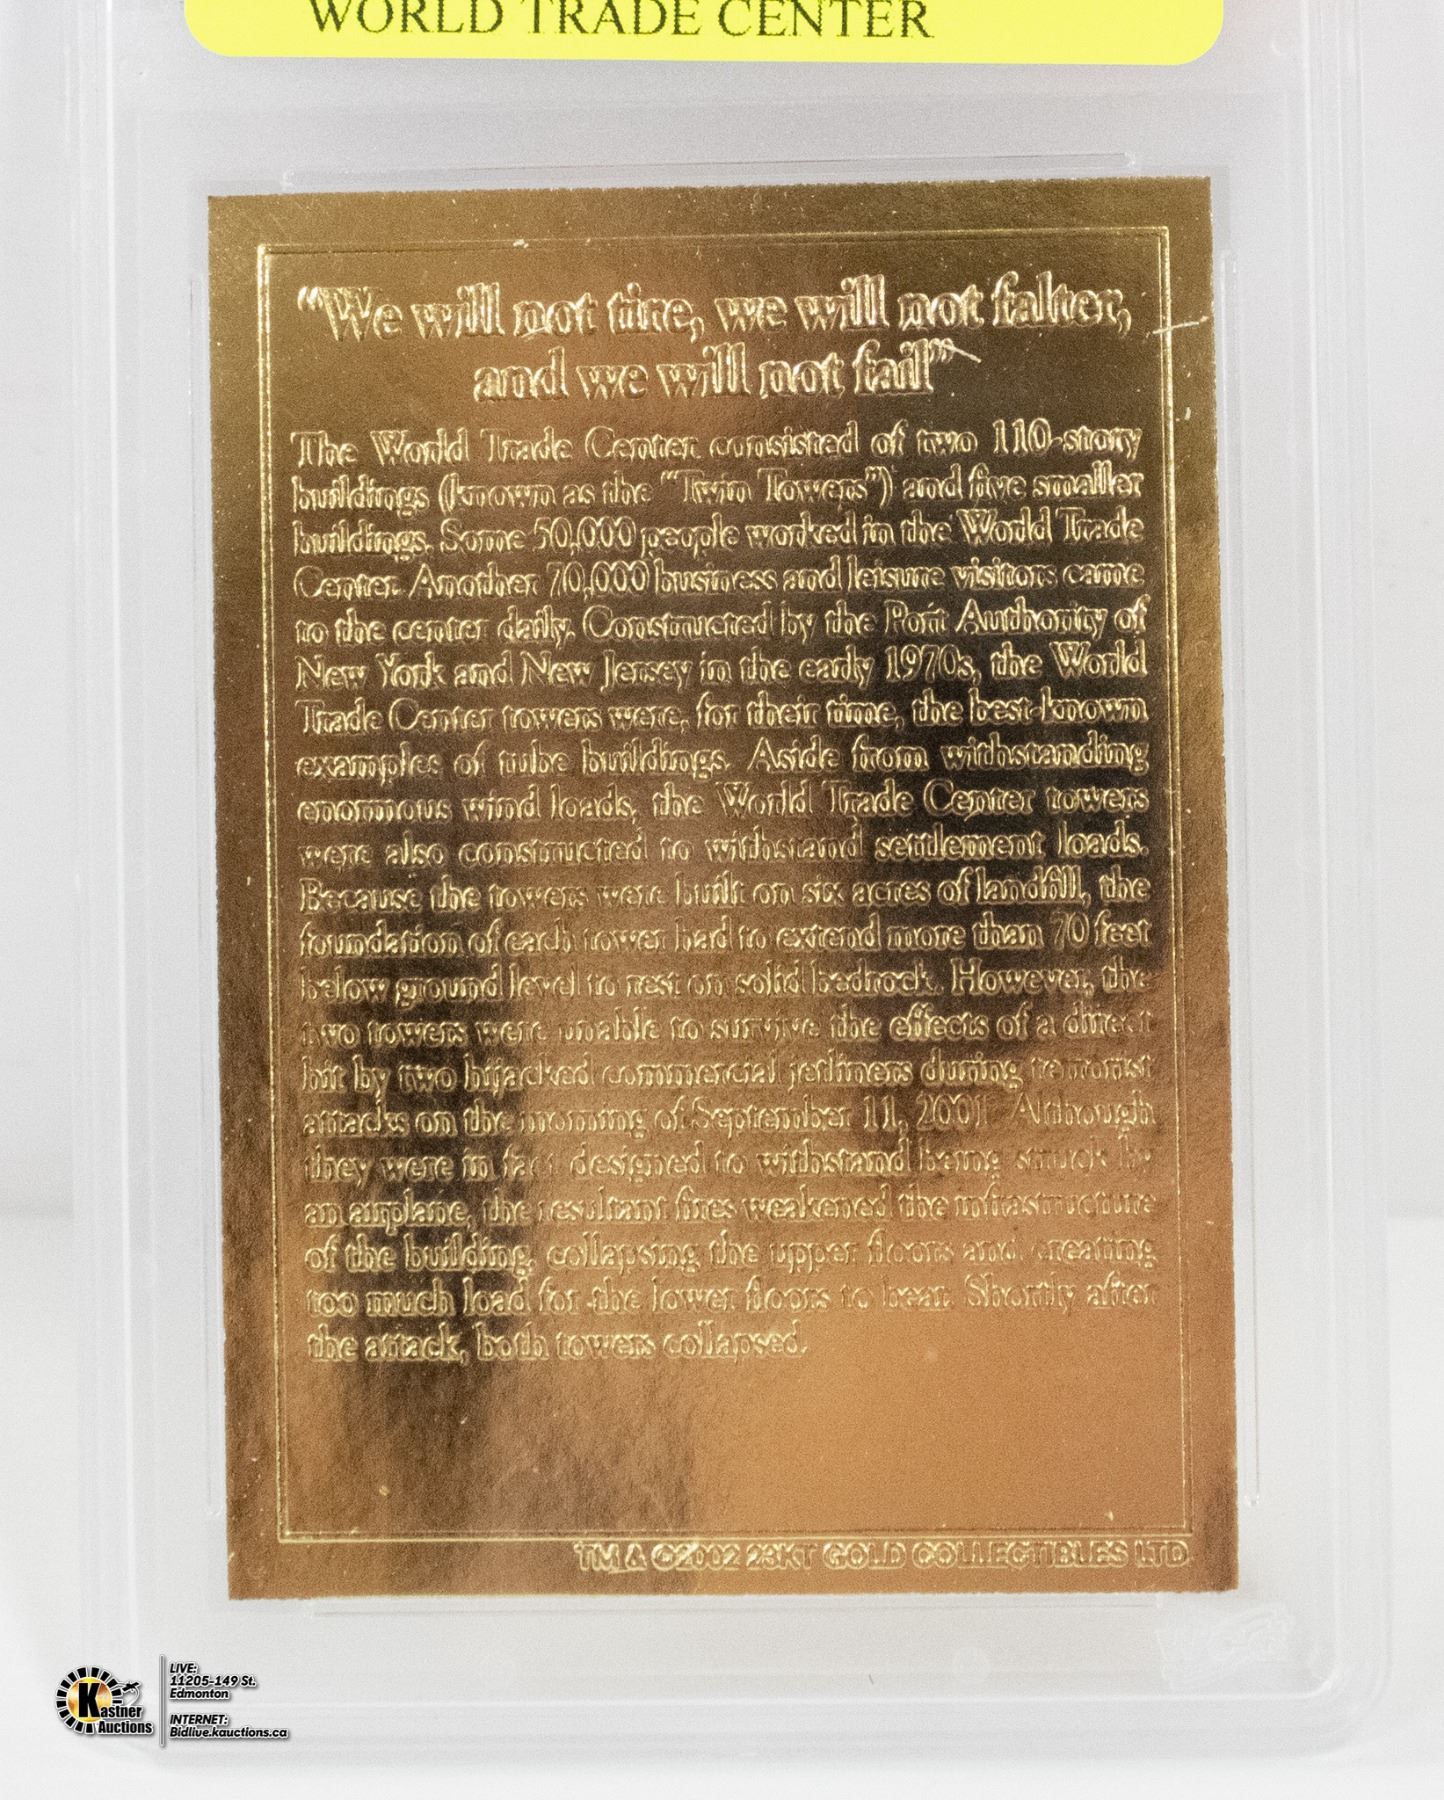 WORLD TRADE CENTER
“We will not tire, we will not falter,
and we will not fail”
The World Trade Center consisted of two 110-story
buildings (known as the “Twin Towers”) and five smaller
buildings. Some 50,000 people worked in the World Trade
Center. Another 70,000 business and leisure visitors came
to the center daily. Constructed by the Port Authority of
New York and New Jersey in the early 1970s, the World
Trade Center towers were, for their time, the best-known
examples of tube buildings. Aside from withstanding
enormous wind loads, the World Trade Center towers
were also constructed to withstand settlement loads.
Because the towers were built on six acres of landfill, the
foundation of each tower had to extend more than 70 feet
below ground level to rest on solid bedrock. However, the
two towers were unable to survive the effects of a direct
hit by two hijacked commercial jetliners during terrorist
attacks on the morning of September 11, 2001. Although
they were in fact designed to withstand being struck by
an airplane, the resultant fires weakened the infrastructure
of the building, collapsing the upper floors and creating
too much load for the lower floors to bear. Shortly after
the attack, both towers collapsed.
TM & ©2002 23KT GOLD COLLECTIBLES LTD.
Kastner
Auctions
LIVE:
11205-149 St.
Edmonton
INTERNET:
Bidlive.kauctions.ca